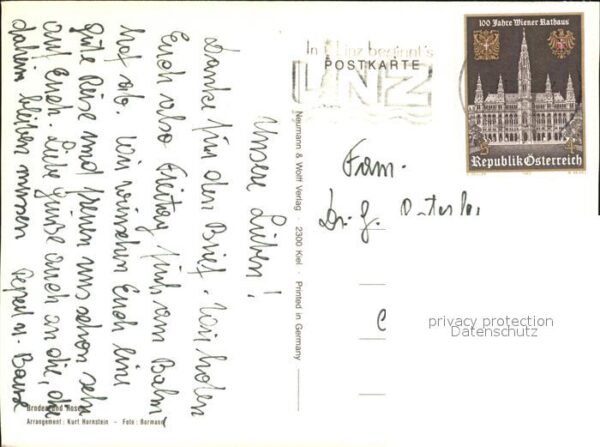 Unsere Lieben!
Danke für den Brief. Wir holen
Euch also Freitag früh am Bahn-
hof ab. Wir wünschen Euch eine
gute Reise und freuen uns schon sehr
auf Euch. Liebe Grüße auch an die, die
daheim bleiben müssen
Neumann & Wolff Verlag · 2300 Kiel · Printed in Germany
In Linz beginnt's
POSTKARTE
LINZ
100 Jahre Wiener Rathaus
Republik Österreich
Fam.
Dr. G.
privacy protection
Datenschutz
Arrangement: Kurt Hornstein - Foto: Hormann